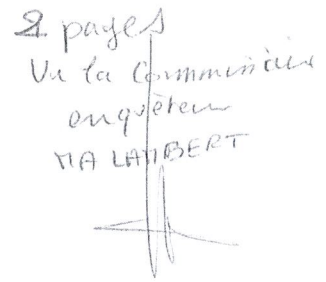 2 pages
Vu la Commissaire
enquêteur
MA LAMBERT